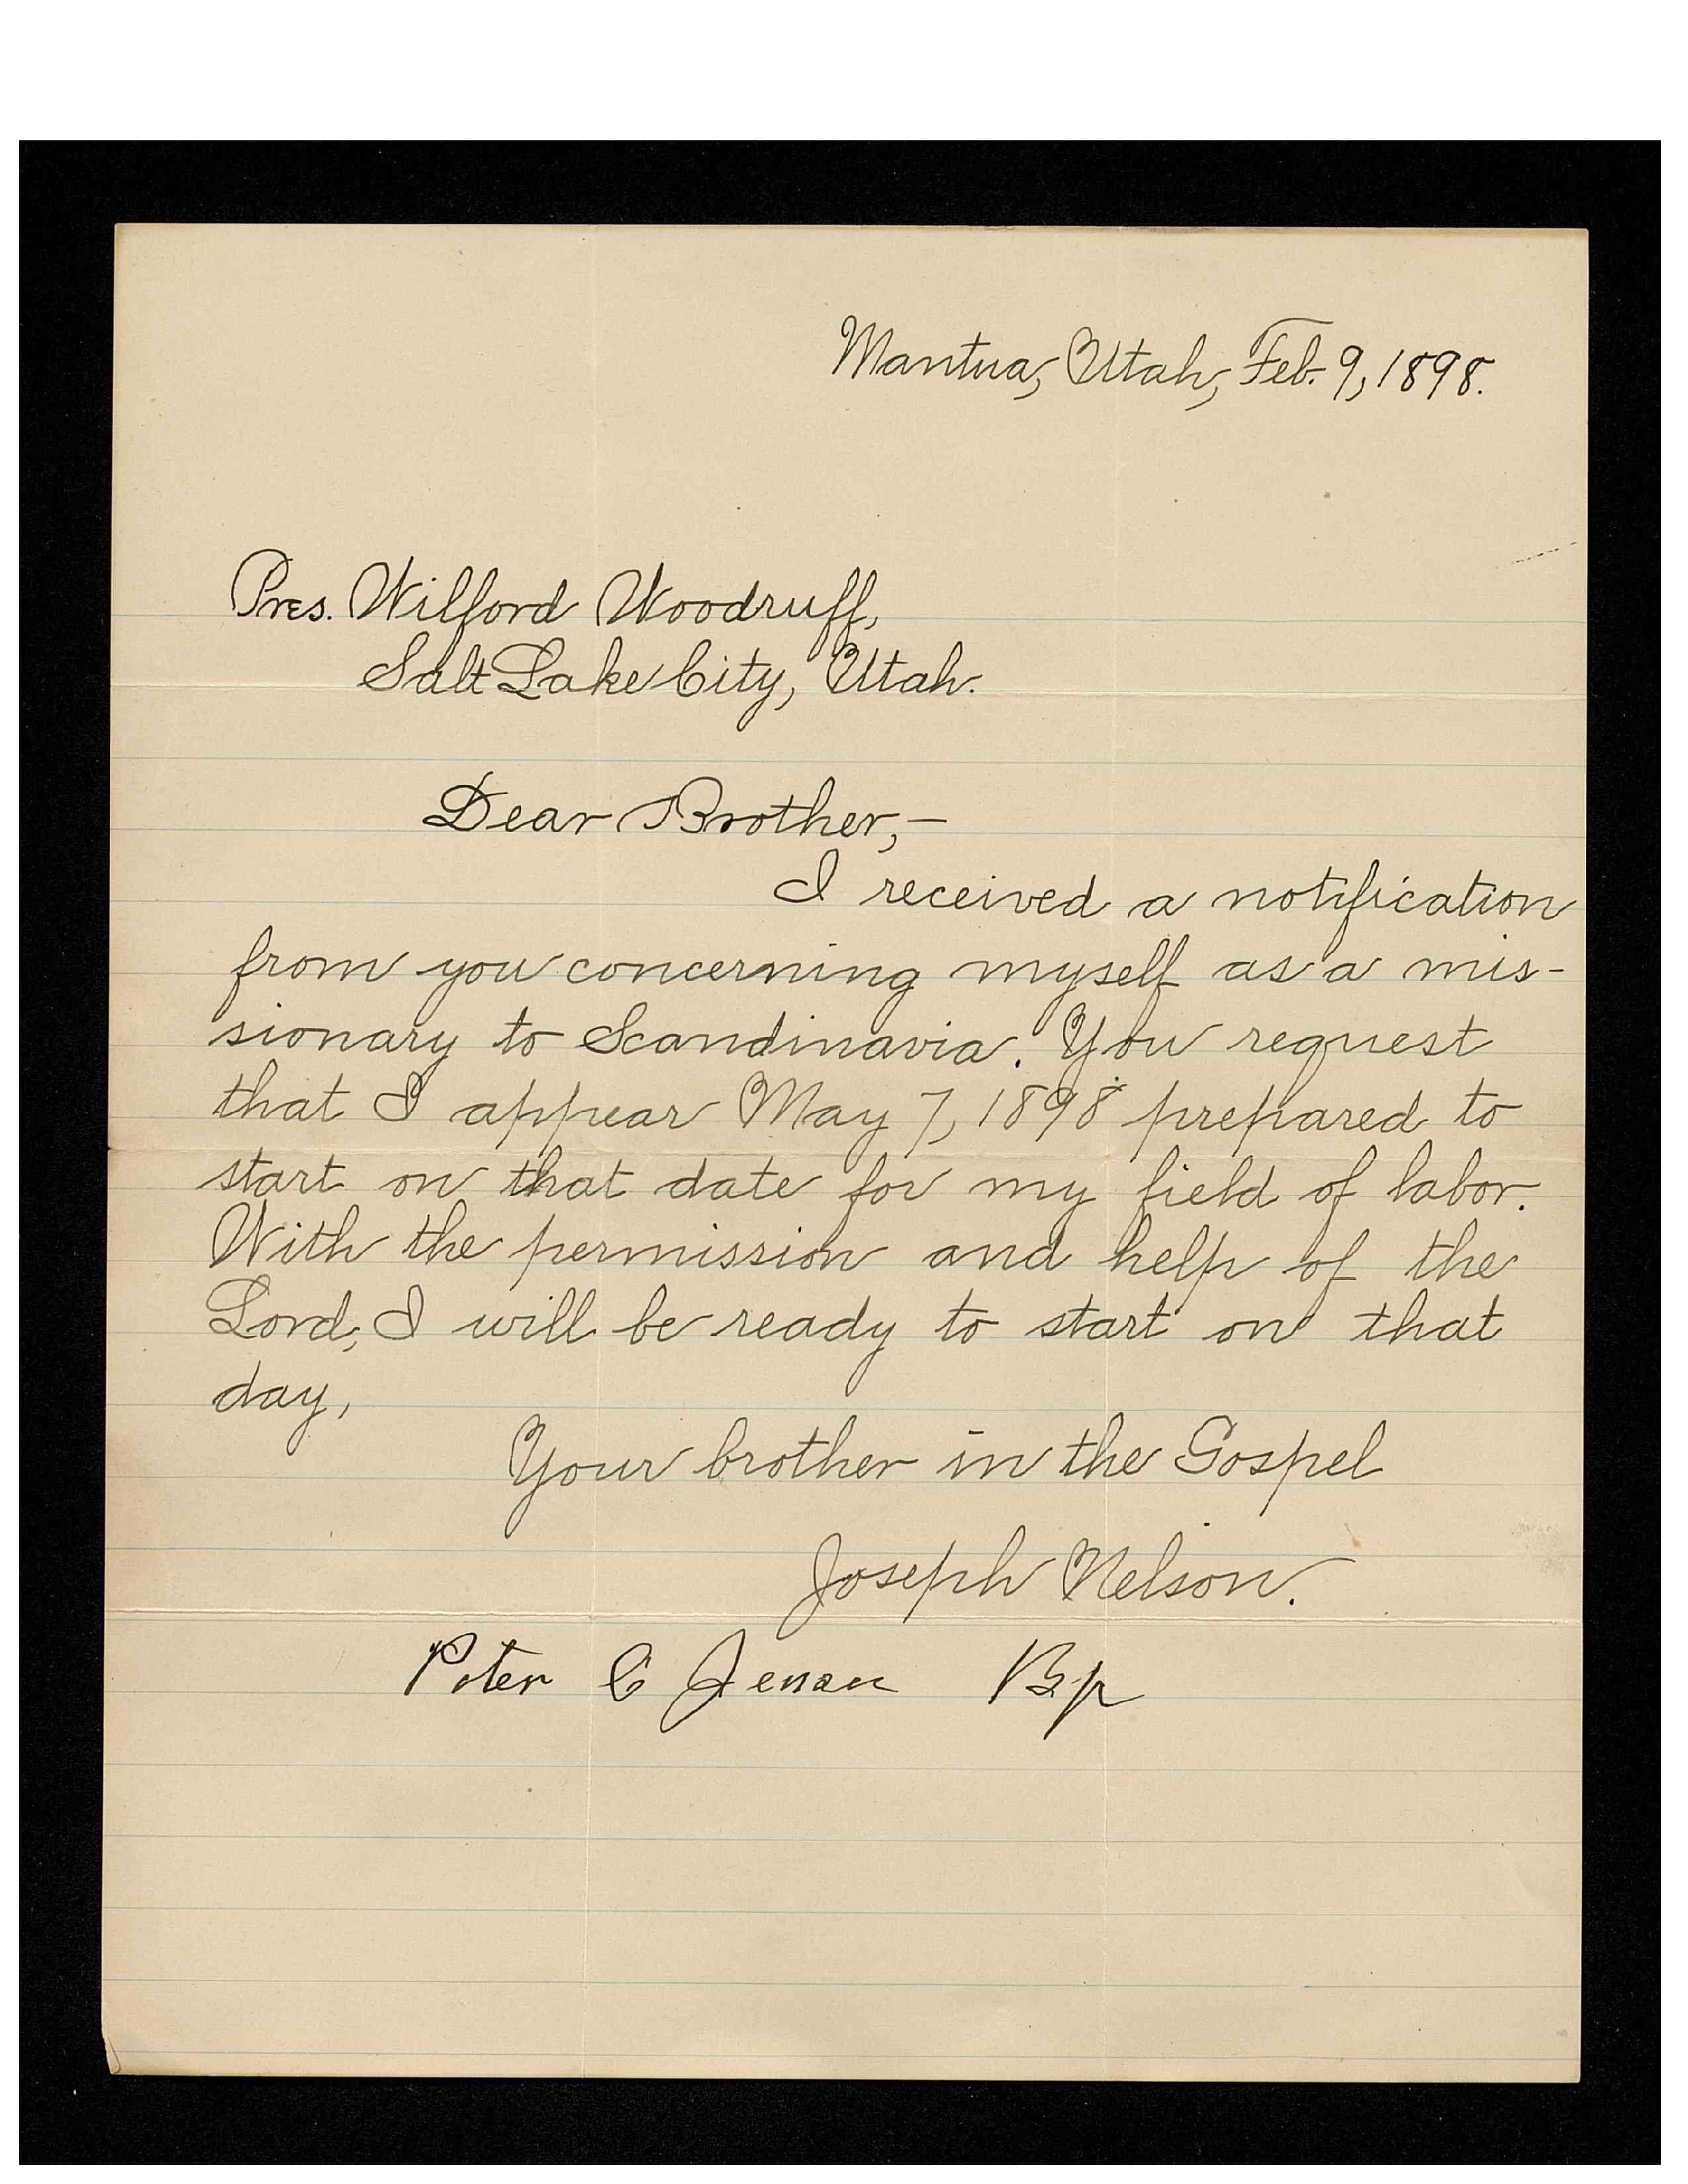 Mantua, Utah, Feb. 9, 1898.
Pres. Wilford Woodruff,
Salt Lake City, Utah.
Dear Brother,—
I received a notification
from you concerning myself as a mis-
sionary to Scandinavia. You request
that I appear May 7, 1898 prepared to
start on that date for my field of labor.
With the permission and help of the
Lord, I will be ready to start on that
day,
Your brother in the Gospel
Joseph Nelson.
Peter C Jensen Bp